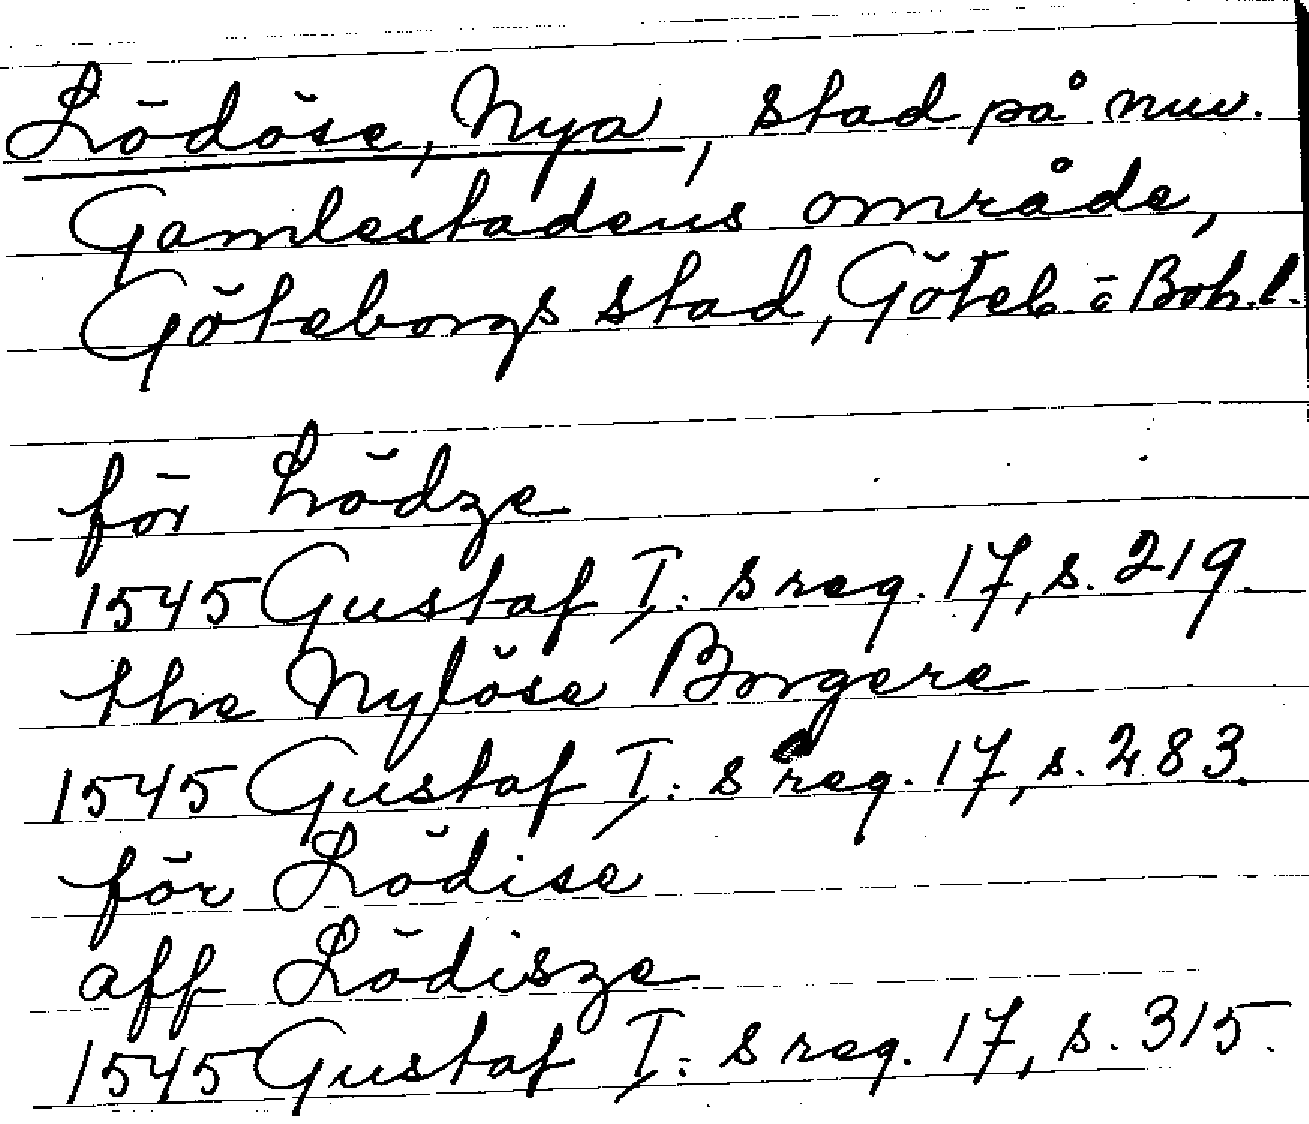 Lödöse, Nya, stad på nuv.
Gamlestadens område,
Göteborgs stad, Göteb o Boh. l.
för Lödze
1545 Gustaf I: s reg. 17, s. 219
the Nylöse Borgere
1545 Gustaf I: s reg. 17, s. 283.
för Lödise
aff Lödisze
1545 Gustaf I: s reg. 17, s. 315.